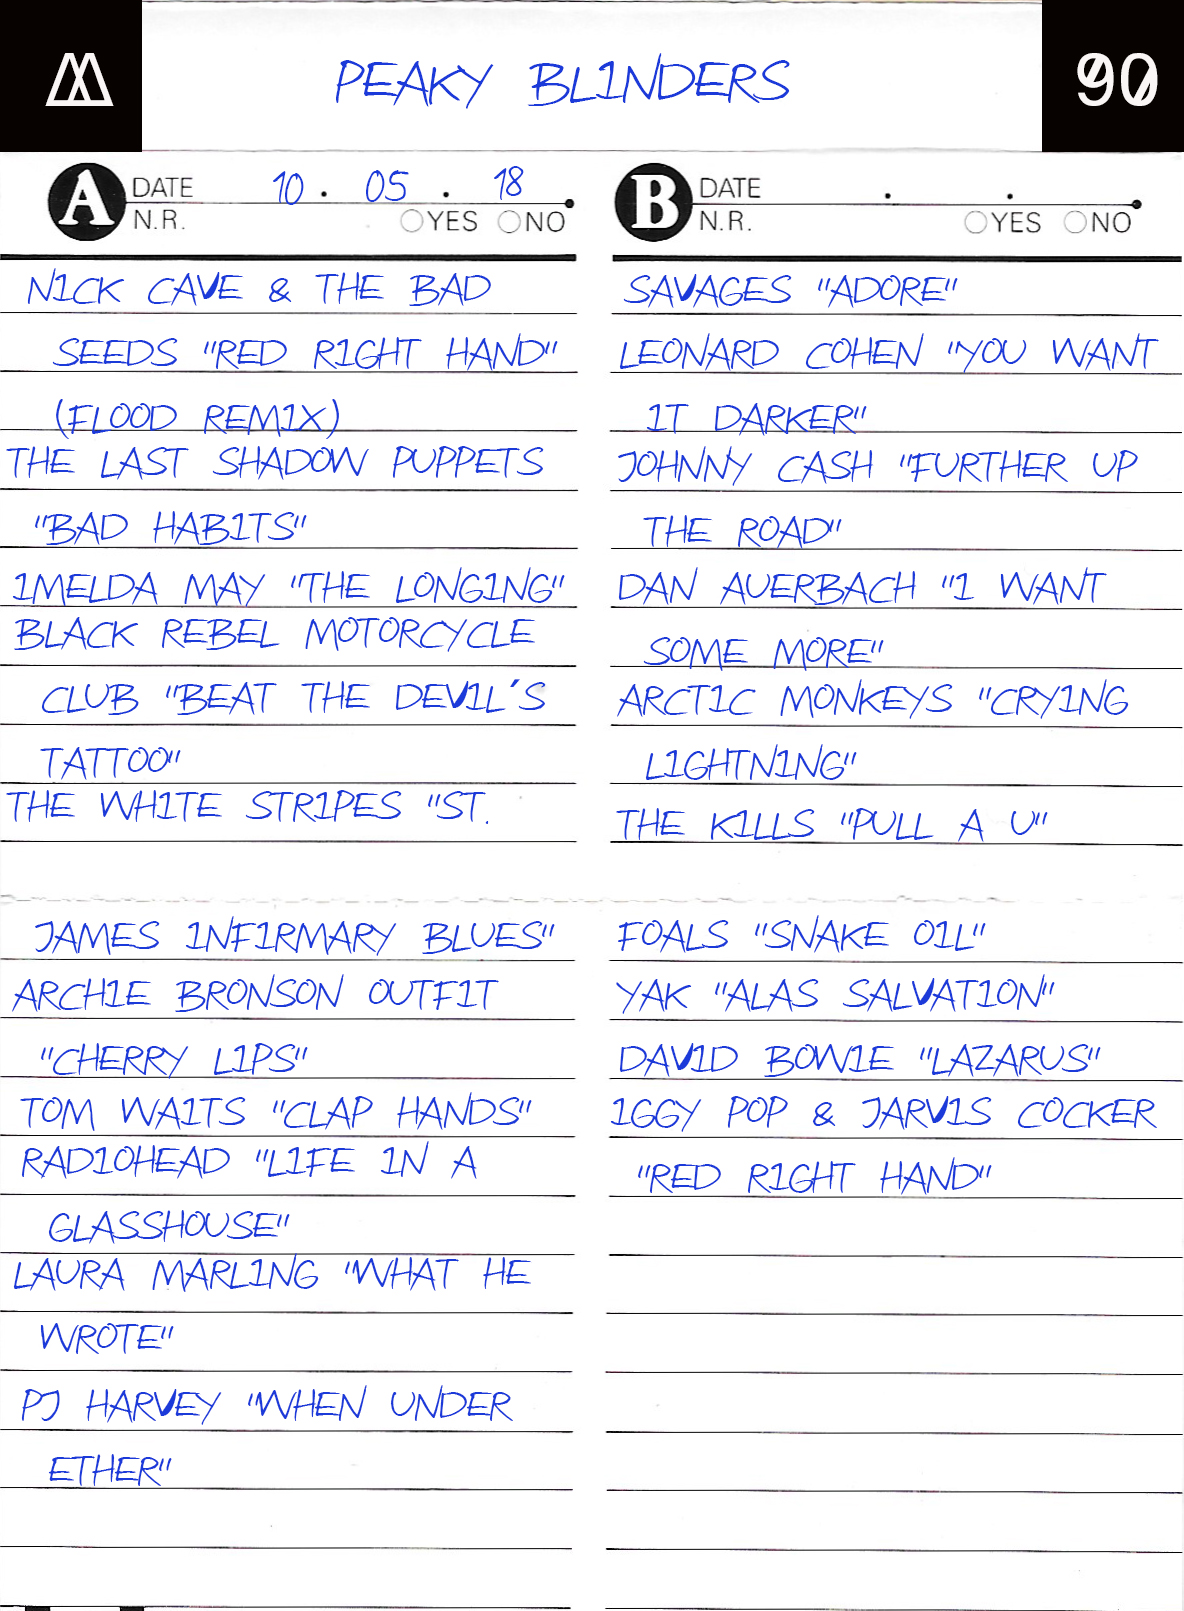 PEAKY BLINDERS
90
A DATE 10 . 05 . 18
N.R. YES NO
NICK CAVE & THE BAD
SEEDS "RED RIGHT HAND"
(FLOOD REMIX)
THE LAST SHADOW PUPPETS
"BAD HABITS"
IMELDA MAY "THE LONGING"
BLACK REBEL MOTORCYCLE
CLUB "BEAT THE DEVIL´S
TATTOO"
THE WHITE STRIPES "ST.
JAMES INFIRMARY BLUES"
ARCHIE BRONSON OUTFIT
"CHERRY LIPS"
TOM WAITS "CLAP HANDS"
RADIOHEAD "LIFE IN A
GLASSHOUSE"
LAURA MARLING "WHAT HE
WROTE"
PJ HARVEY "WHEN UNDER
ETHER"
B DATE . .
N.R. YES NO
SAVAGES "ADORE"
LEONARD COHEN "YOU WANT
IT DARKER"
JOHNNY CASH "FURTHER UP
THE ROAD"
DAN AUERBACH "I WANT
SOME MORE"
ARCTIC MONKEYS "CRYING
LIGHTNING"
THE KILLS "PULL A U"
FOALS "SNAKE OIL"
YAK "ALAS SALVATION"
DAVID BOWIE "LAZARUS"
IGGY POP & JARVIS COCKER
"RED RIGHT HAND"